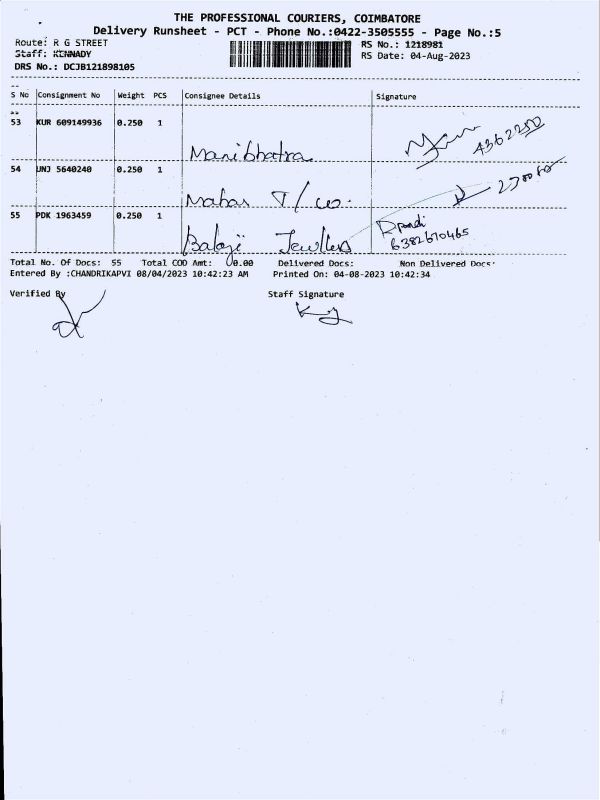 THE PROFESSIONAL COURIERS, COIMBATORE
Delivery Runsheet - PCT - Phone No.:0422-3505555 - Page No.:5
Route: R G STREET RS No.: 1218981
Staff: KENNADY RS Date: 04-Aug-2023
DRS No.: DCJB121898105
S No Consignment No Weight PCS Consignee Details Signature
53 KUR 609149936 0.250 1
Manibhatra 4362250
54 UNJ 5640240 0.250 1
Mahas T/co.
55 PDK 1963459 0.250 1
Balaji Jewllers 6382670465
Total No. Of Docs: 55 Total COD Amt: 0.00 Delivered Docs: Non Delivered Docs:
Entered By :CHANDRIKAPVI 08/04/2023 10:42:23 AM Printed On: 04-08-2023 10:42:34
Verified By Staff Signature